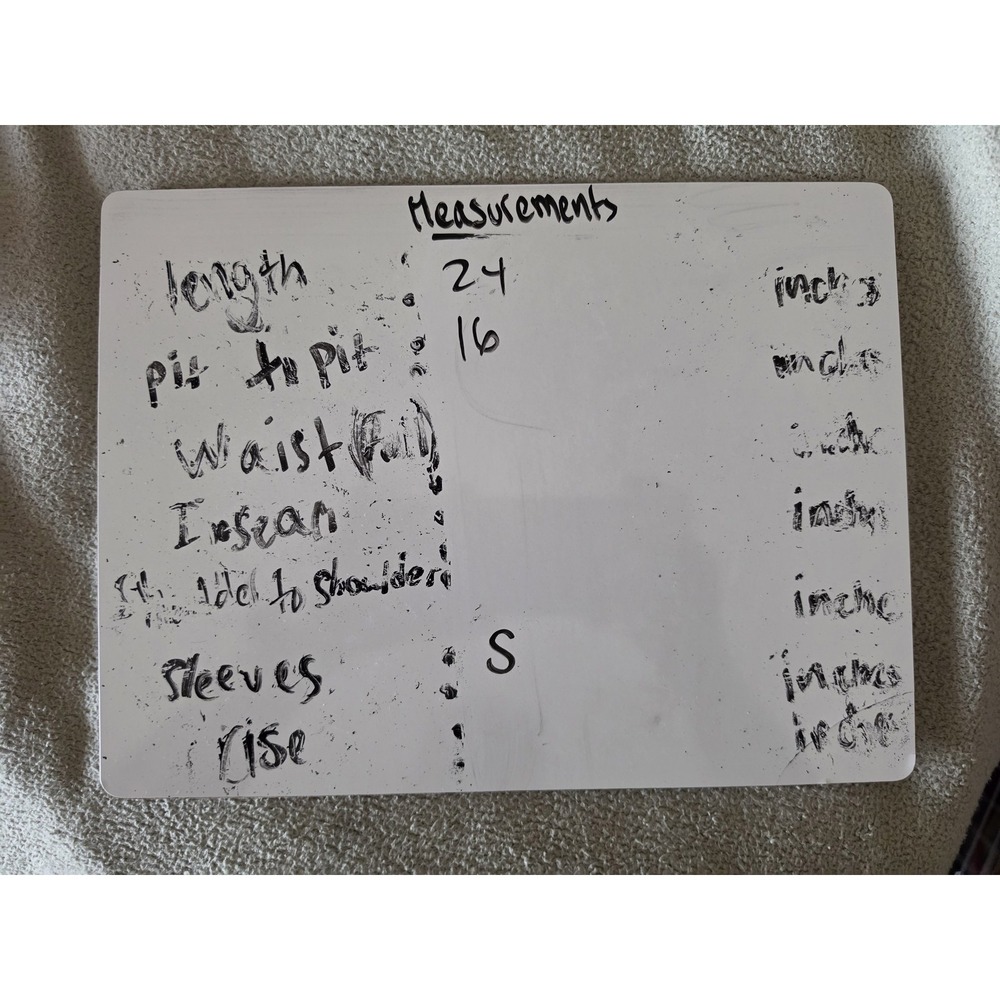 Measurements
length : 24 inches
pit to pit : 16 inches
Waist (Full) : inches
Inseam : inches
shoulder to shoulder : inches
sleeves : 5 inches
rise : inches